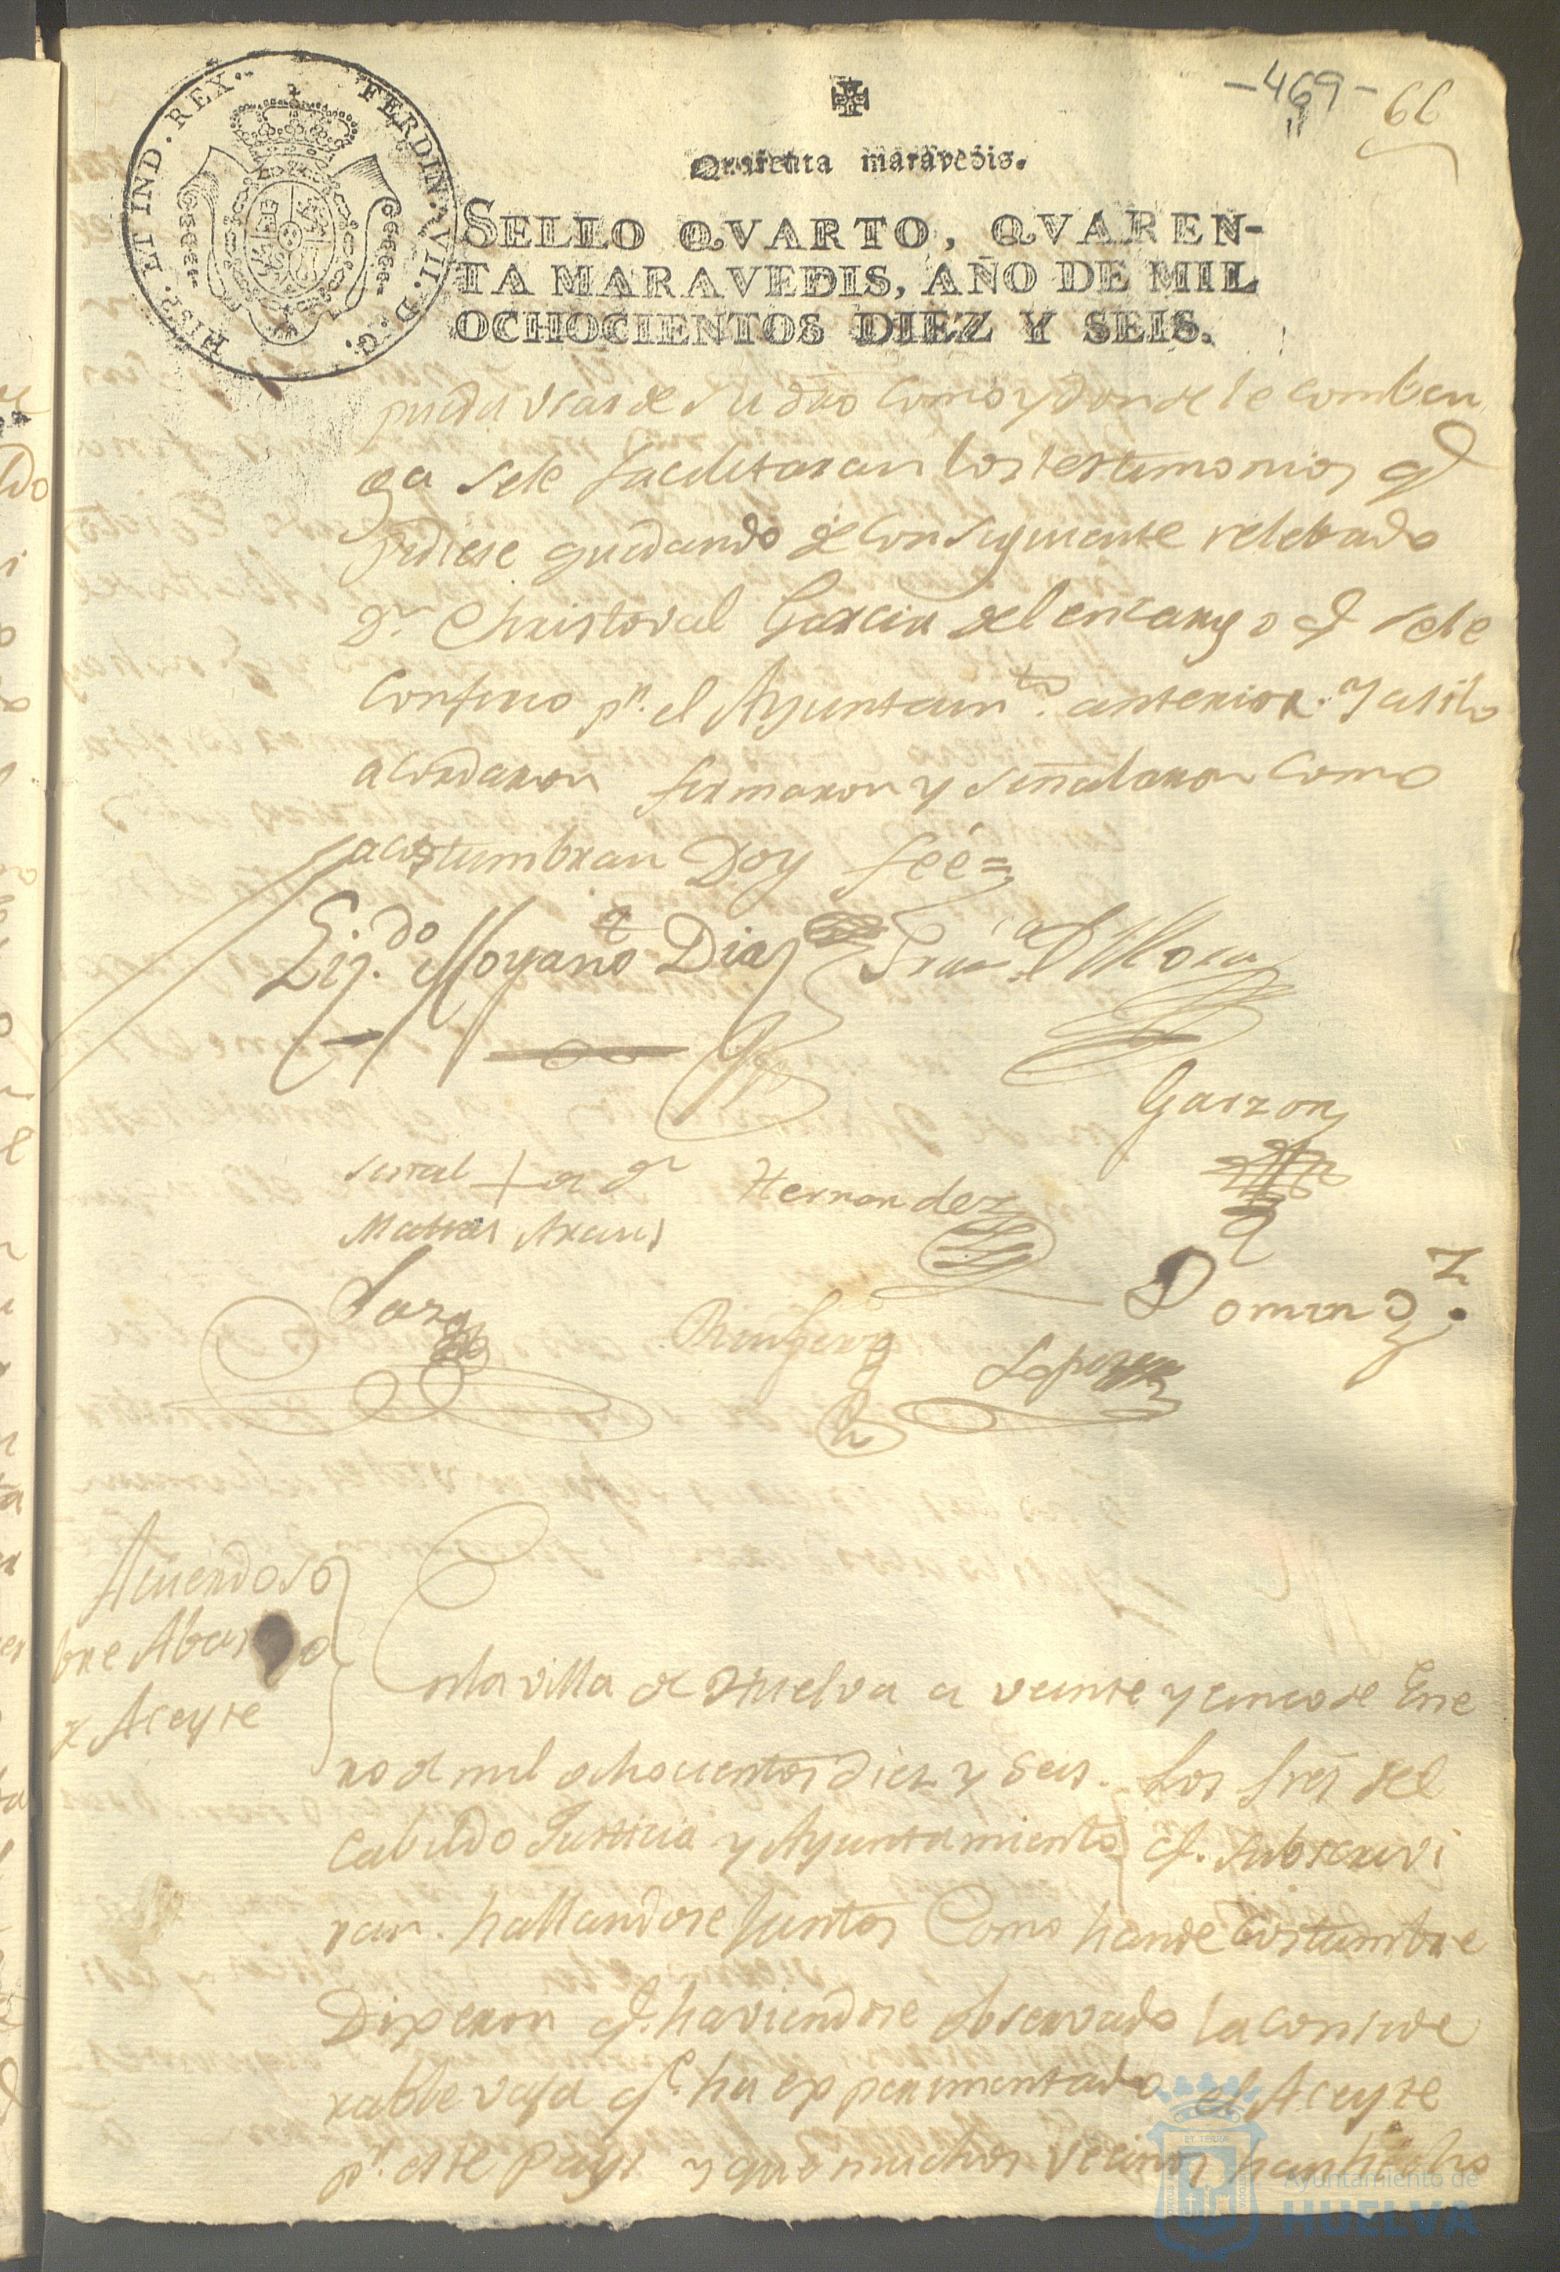 -469- 66
Quarenta maravedis.
HISP. ET IND. REX. FERDIN. VII. D. G.
SELLO QVARTO, QVAREN-
TA MARAVEDIS, AÑO DE MIL
OCHOCIENTOS DIEZ Y SEIS.
pueda usar de su dro como y donde le comben
ga sele facilitaran los testimonios q.
pidiese quedando de consiguiente relebado
Dn. Christoval Garcia del encargo q. sele
confirio pr. el Ayuntamto. anterior. Y asi lo
acordaron firmaron y señalaron como
acostumbran Doy feé=
Lizdo. Moyano Diaz Franco. Ulloa
Garzon
señal + de Dn
Matias Araus
Hernandez
Domingz.
Lara
Lopez
Acuerdo so
bre Abasto
de Aceyte
En la villa de Huelva a veinte y cinco de Ene
ro de mil ochocientos diez y seis. Los Sres del
Cabildo Justicia y Ayuntamiento q. subscrivi
ran. hallandose juntos Como han de costumbre
Dixeron q. haviendose observado la conside
rable vaja q. ha experimentado el Aceyte
pr. este Pays y que muchos vecinos han hecho
Ayuntamiento de
HUELVA